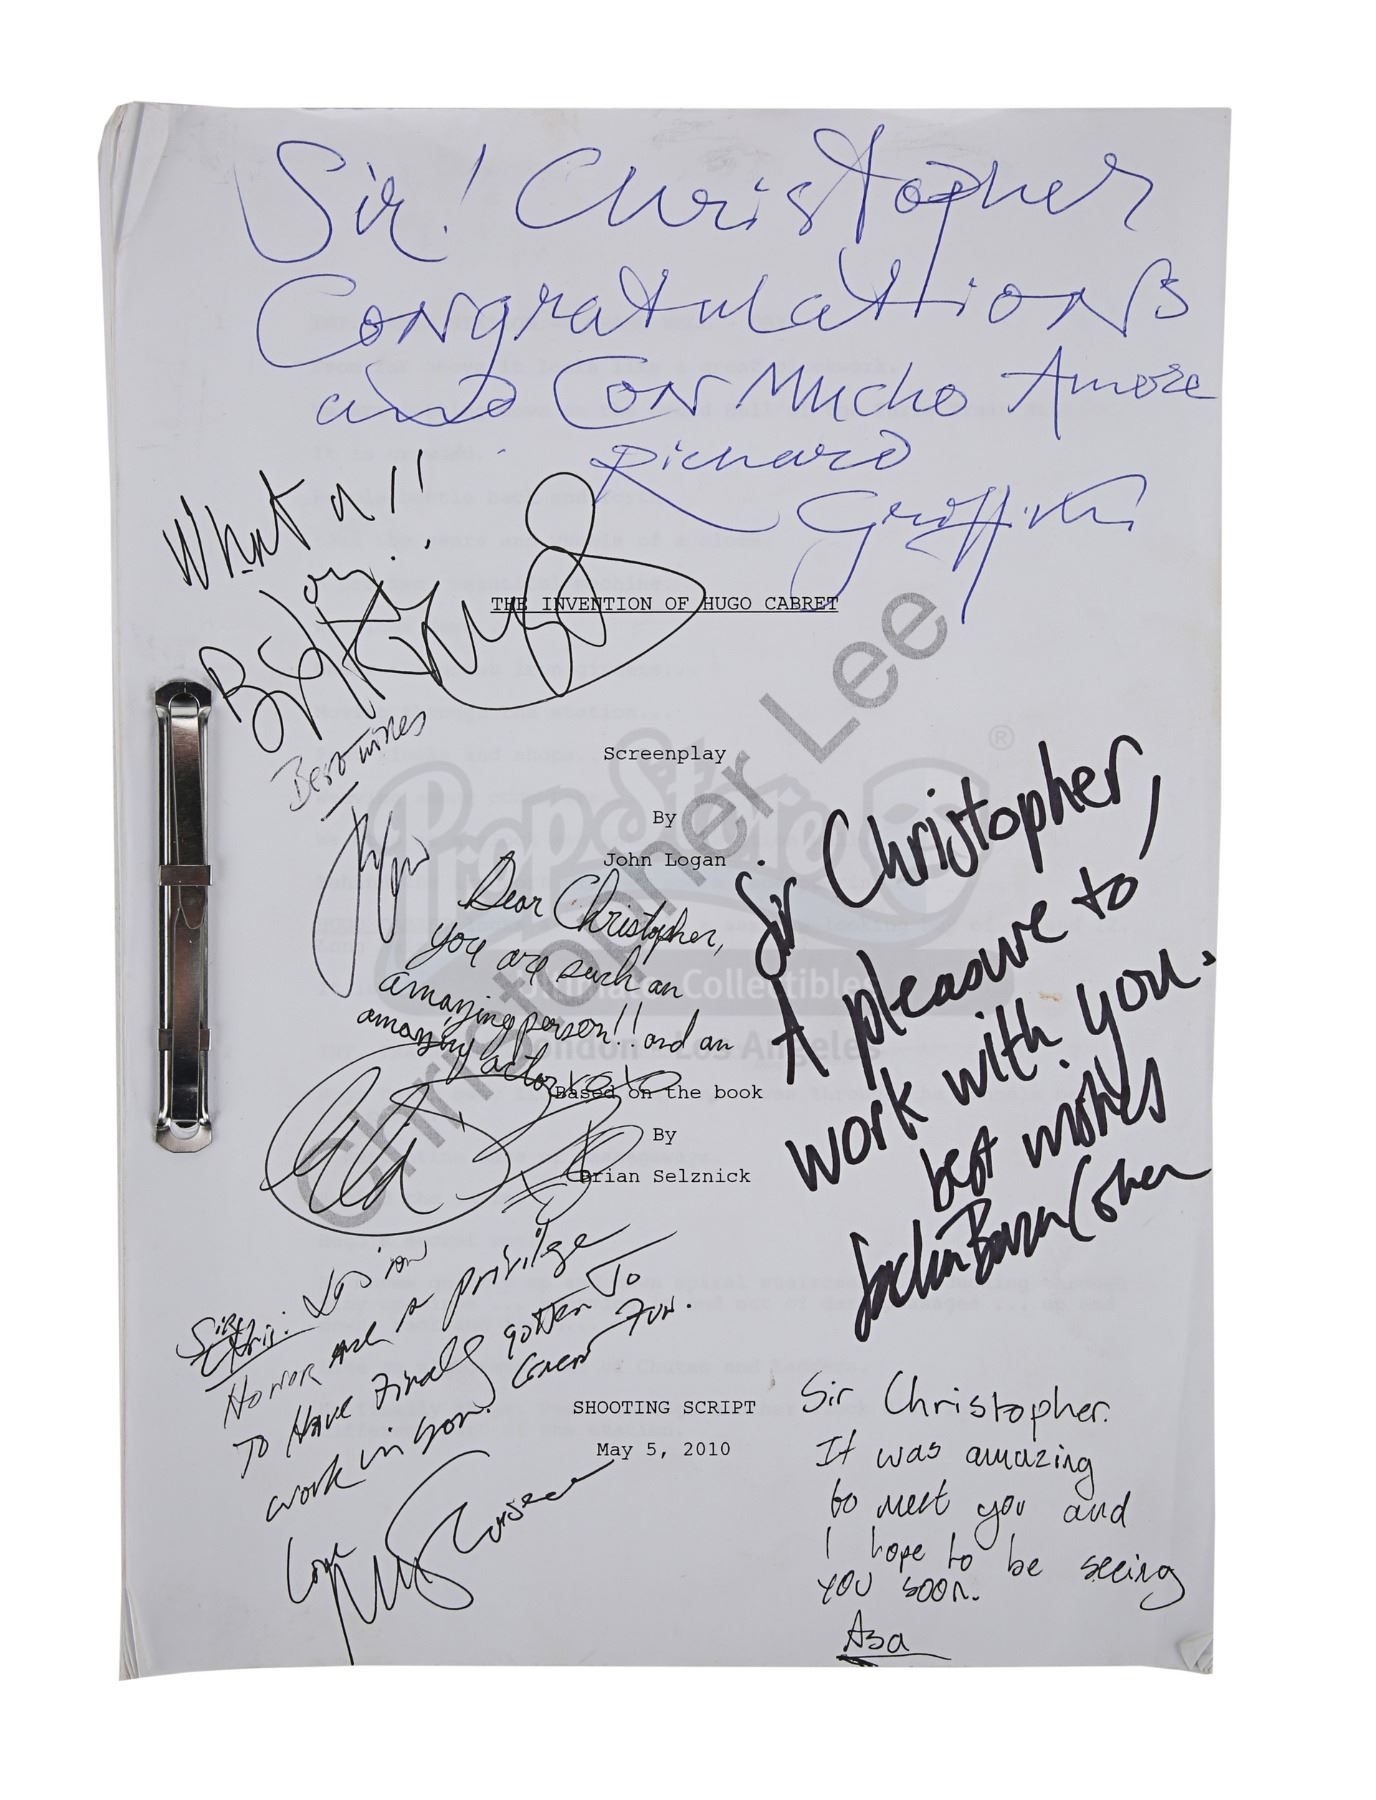 Sir! Christopher
Congratulations
and Con Mucho Amore
Richard
Griffiths
What a!!
Best wishes
THE INVENTION OF HUGO CABRET
Screenplay
By
John Logan
Christopher Lee
PropStore
®
Ultimate Collectibles
London - Los Angeles
Dear Christopher,
you are such an
amazing person!! and an
amazing actor xoxo
Based on the book
By
Brian Selznick
Sir Christopher,
A pleasure to
work with you.
best wishes
Sacha Baron Cohen
Honor and a privilege
To Have Finally gotten To
work w/ you. Great Fun.
Love
SHOOTING SCRIPT
May 5, 2010
Sir Christopher.
It was amazing
to meet you and
I hope to be seeing
you soon.
Asa